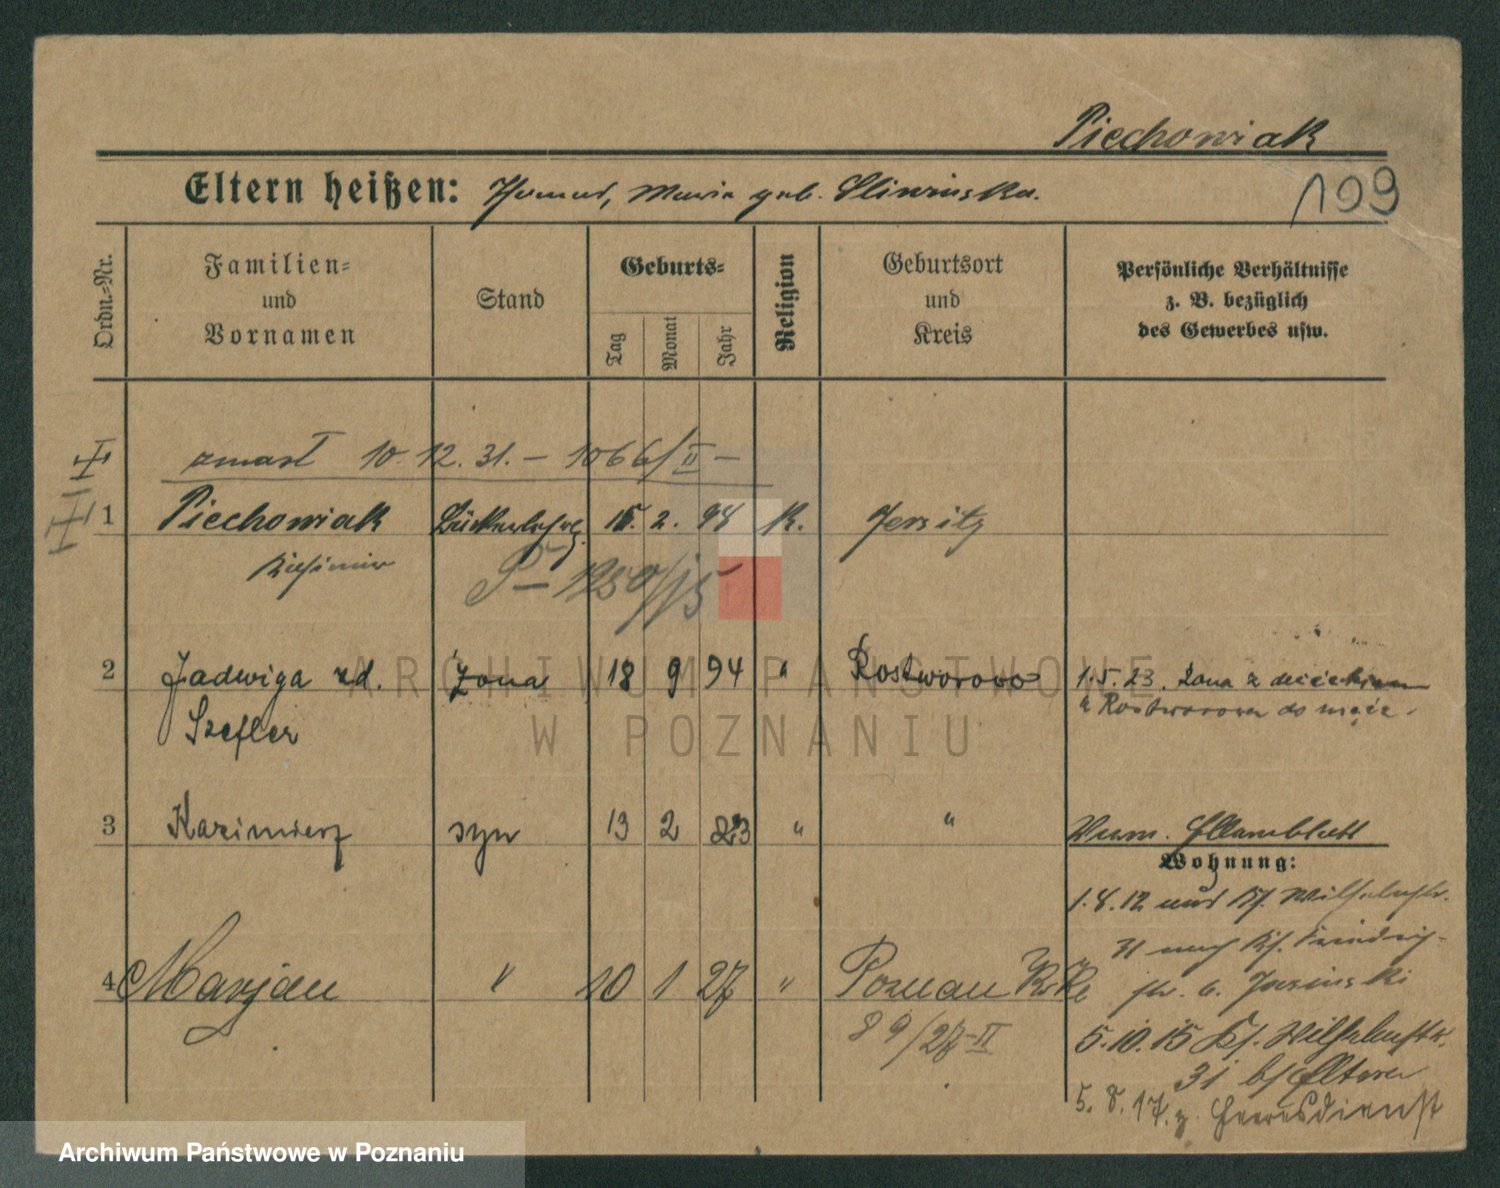 Piechowiak
Eltern heißen: Thomas, Maria geb. Sliwinska.
109
Ordn.-Nr.
Familien-
und
Vornamen
Stand
Geburts-
Tag
Monat
Jahr
Religion
Geburtsort
und
Kreis
Persönliche Verhältnisse
z. B. bezüglich
des Gewerbes usw.
zmarł 10.12.31. – 1066/II –
1 Piechowiak 2. K. Jersitz
Kasimir
2 Jadwiga zd. żona 18 9 94 " Rostworowo 1.5.23. Żona z dzieckiem
Szefler
z Rostworowa do męża.
3 Kazimierz syn 13 2 23 " "
Wohnung:
1.8.12
31
4 Marjan " 10 1 27 " Poznań
str. 6. Jasinski
89/27-II
5.10.15 Wilhelmstr.
31 b/Eltern
5.8.17. z. Heeresdienst
ARCHIWUM PAŃSTWOWE
W POZNANIU
Archiwum Państwowe w Poznaniu